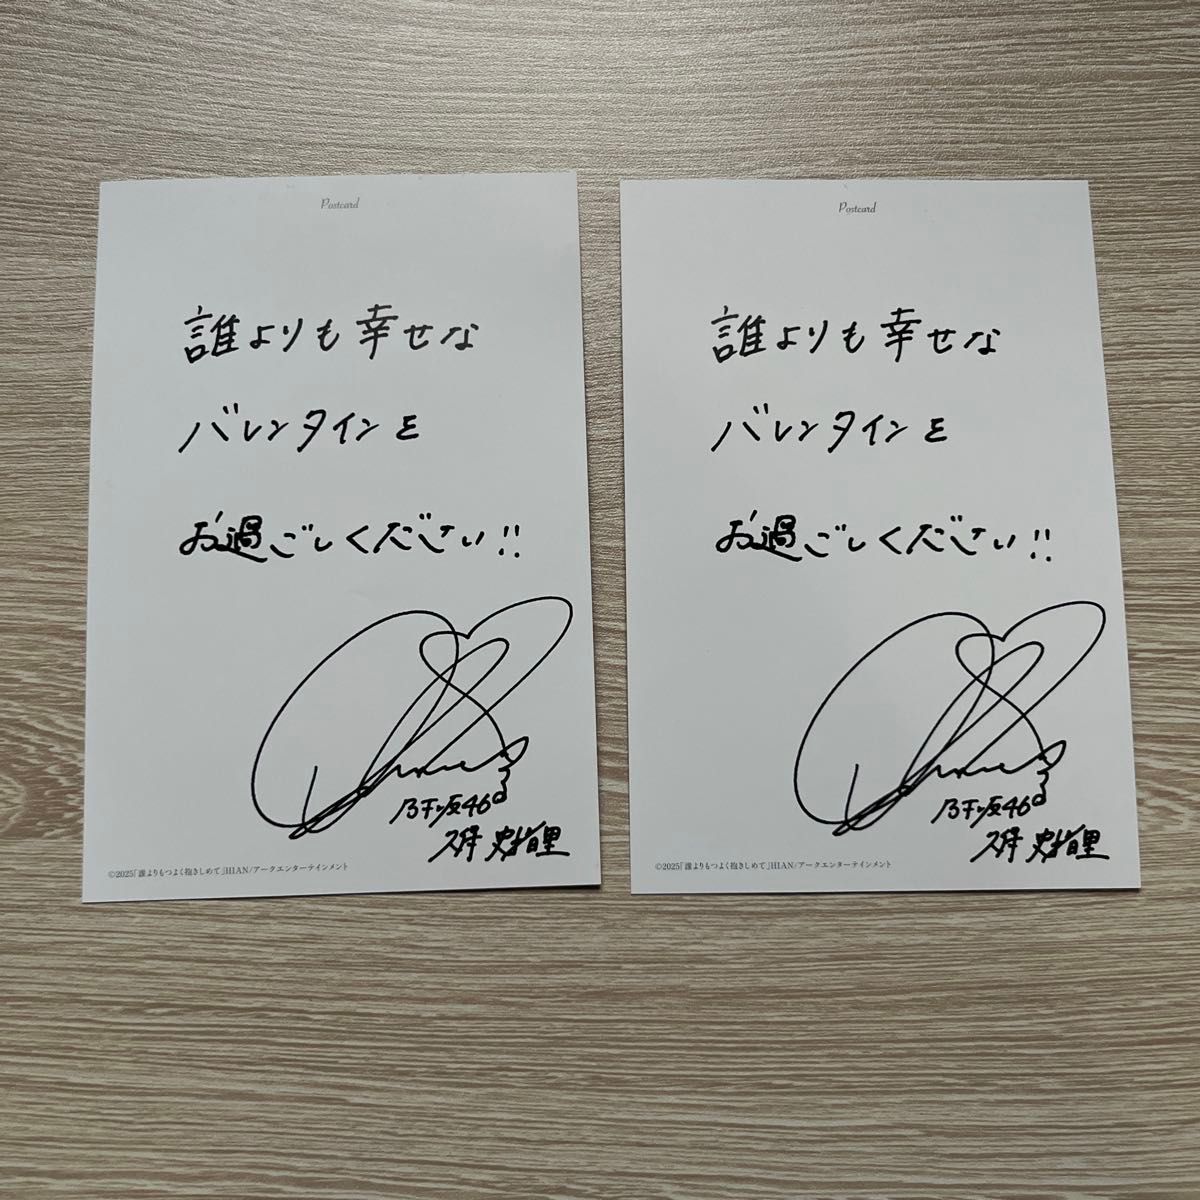 Postcard
誰よりも幸せな
バレンタインを
お過ごしください!!
乃木坂46
久保 史緒里
©2025「誰よりもつよく抱きしめて」HIAN/アークエンターテインメント
Postcard
誰よりも幸せな
バレンタインを
お過ごしください!!
乃木坂46
久保 史緒里
©2025「誰よりもつよく抱きしめて」HIAN/アークエンターテインメント